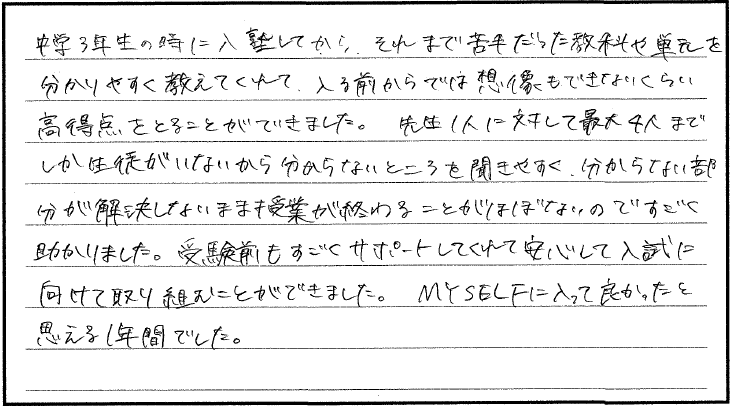 中学3年生の時に入塾してから、それまで苦手だった教科や単元を
分かりやすく教えてくれて、入る前からでは想像もできないくらい
高得点をとることができました。 先生1人に対して最大4人まで
しか生徒がいないから分からないところを聞きやすく、分からない部
分が解決しないまま授業が終わることがほぼないのですごく
助かりました。受験前もすごくサポートしてくれて安心して入試に
向けて取り組むことができました。 MYSELFに入って良かったと
思える1年間でした。